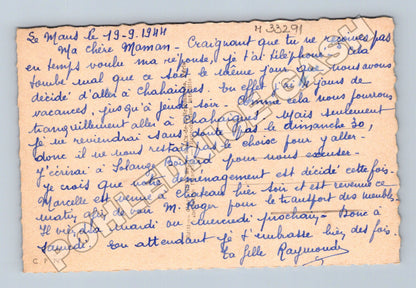 Le Mans le 19-9-1944
M 33291
Ma chère Maman - Craignant que tu ne reçoives pas
en temps voulu ma réponse, je t'ai téléphoné. Cela
tombe mal que ce soit le même jour que nous avons
décidé d'aller à Chahaignes. En effet jours de
vacances, jusqu'à jeudi soir. Comme cela nous pourrons
tranquillement aller à Chahaignes. Mais seulement
je ne reviendrai sans doute pas le dimanche 30,
donc il ne nous restait pas le choix pour y aller.
J'écrirai à Solange pour nous excuser.
Je crois que votre déménagement est décidé cette fois.
Marcelle est venue à Chateau hier soir et est revenue ce
matin, afin de voir M. Roger pour le transport des meubles.
Il viendra mardi ou mercredi prochain - Donc à
Samedi. En attendant je t'embrasse bien des fois.
Ta fille Raymonde
C. P.